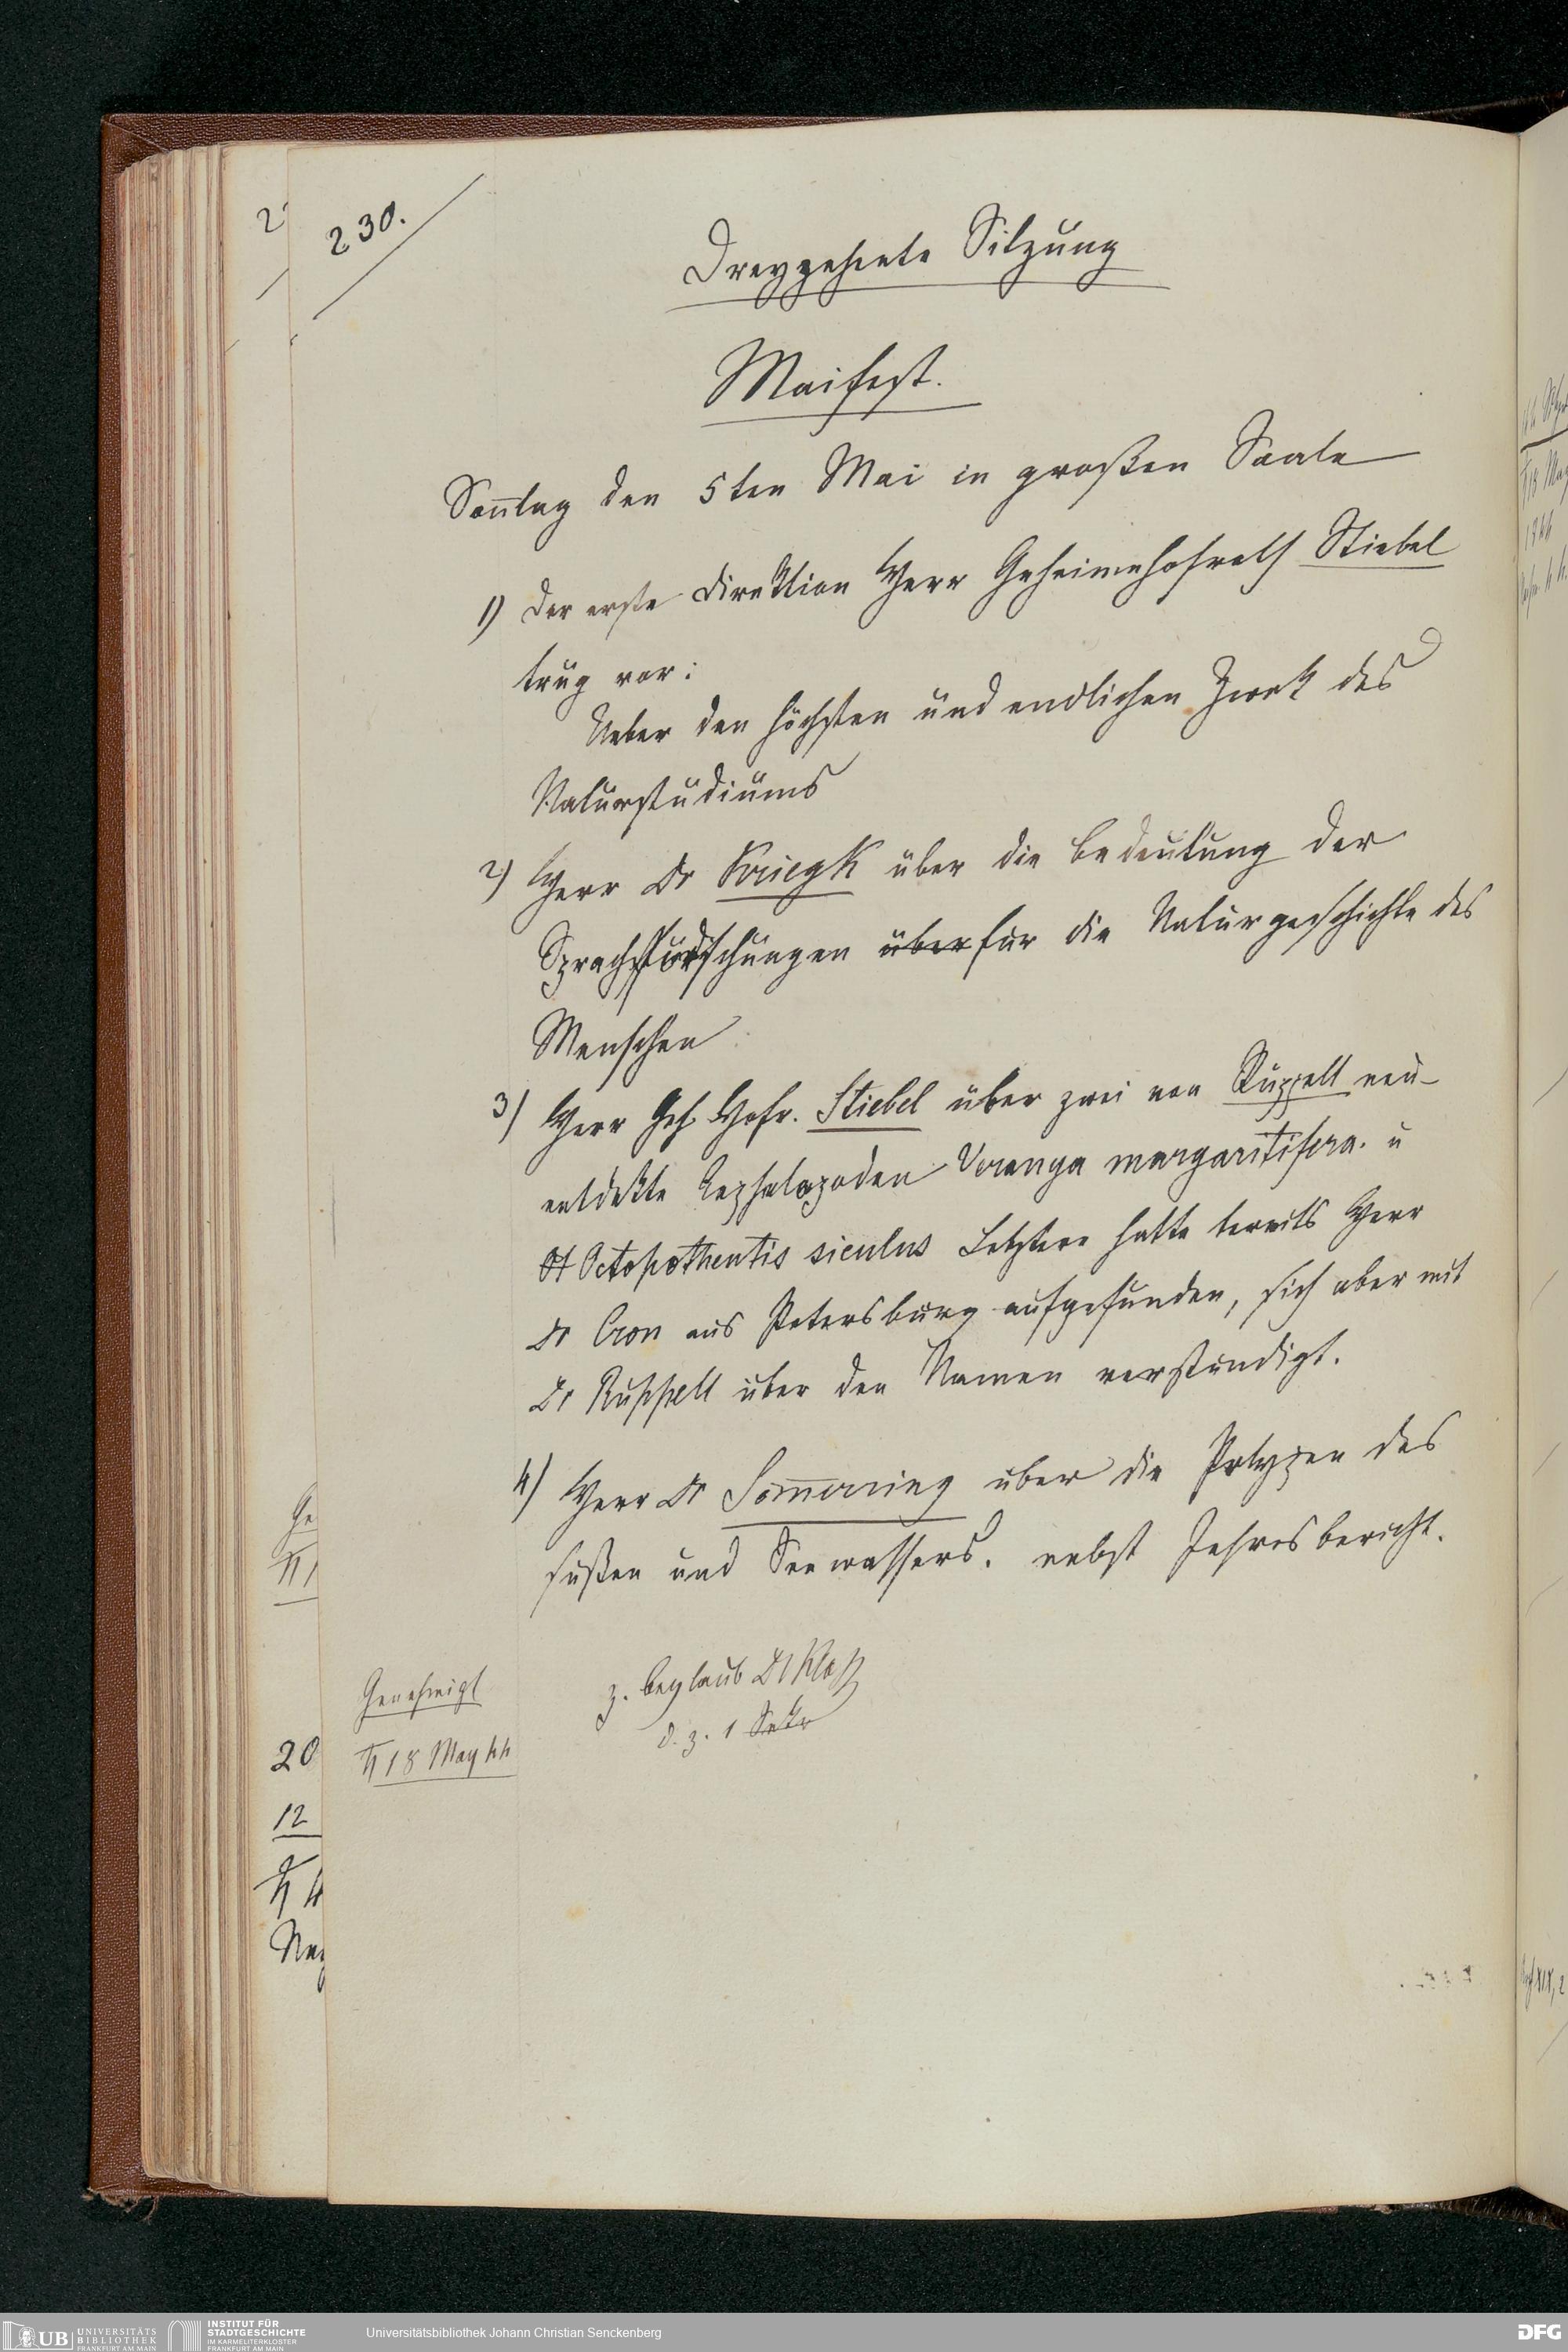 230.
Dreyzehnte Sitzung
Maifest.
Son̄tag den 5ten Mai in großen Saale
1) Der erste Direktion Herr Geheimehofrath Stiebel
trug vor:
Ueber den höchsten und endlichen Zwek des
Naturstudiums
2) Herr Dr Kriegk über die Bedeutung der
Sprachforschungen über für die Naturgeschichte des
Menschen
3) Herr Geh. Hofr. Stiebel über zwei von Rüppell neu-
entdekte Cephalopoden Veranya margaritifera. u
Ot Octopothentis siculus Letztere hatte bereits Herr
Dr Cron aus Petersburg aufgefunden, sich aber mit
Dr Rüppell über den Namen verständigt.
4) Herr Dr Söm̄erring über die Polypen des
süßen und Seewassers. nebst Jahresbericht.
z. Beglaub Dr Kloß
d. z. 1 Sekr
Genehmigt
18 May 44
20
12
UB UNIVERSITÄTS
BIBLIOTHEK
FRANKFURT AM MAIN
INSTITUT FÜR
STADTGESCHICHTE
IM KARMELITERKLOSTER
FRANKFURT AM MAIN
Universitätsbibliothek Johann Christian Senckenberg
DFG